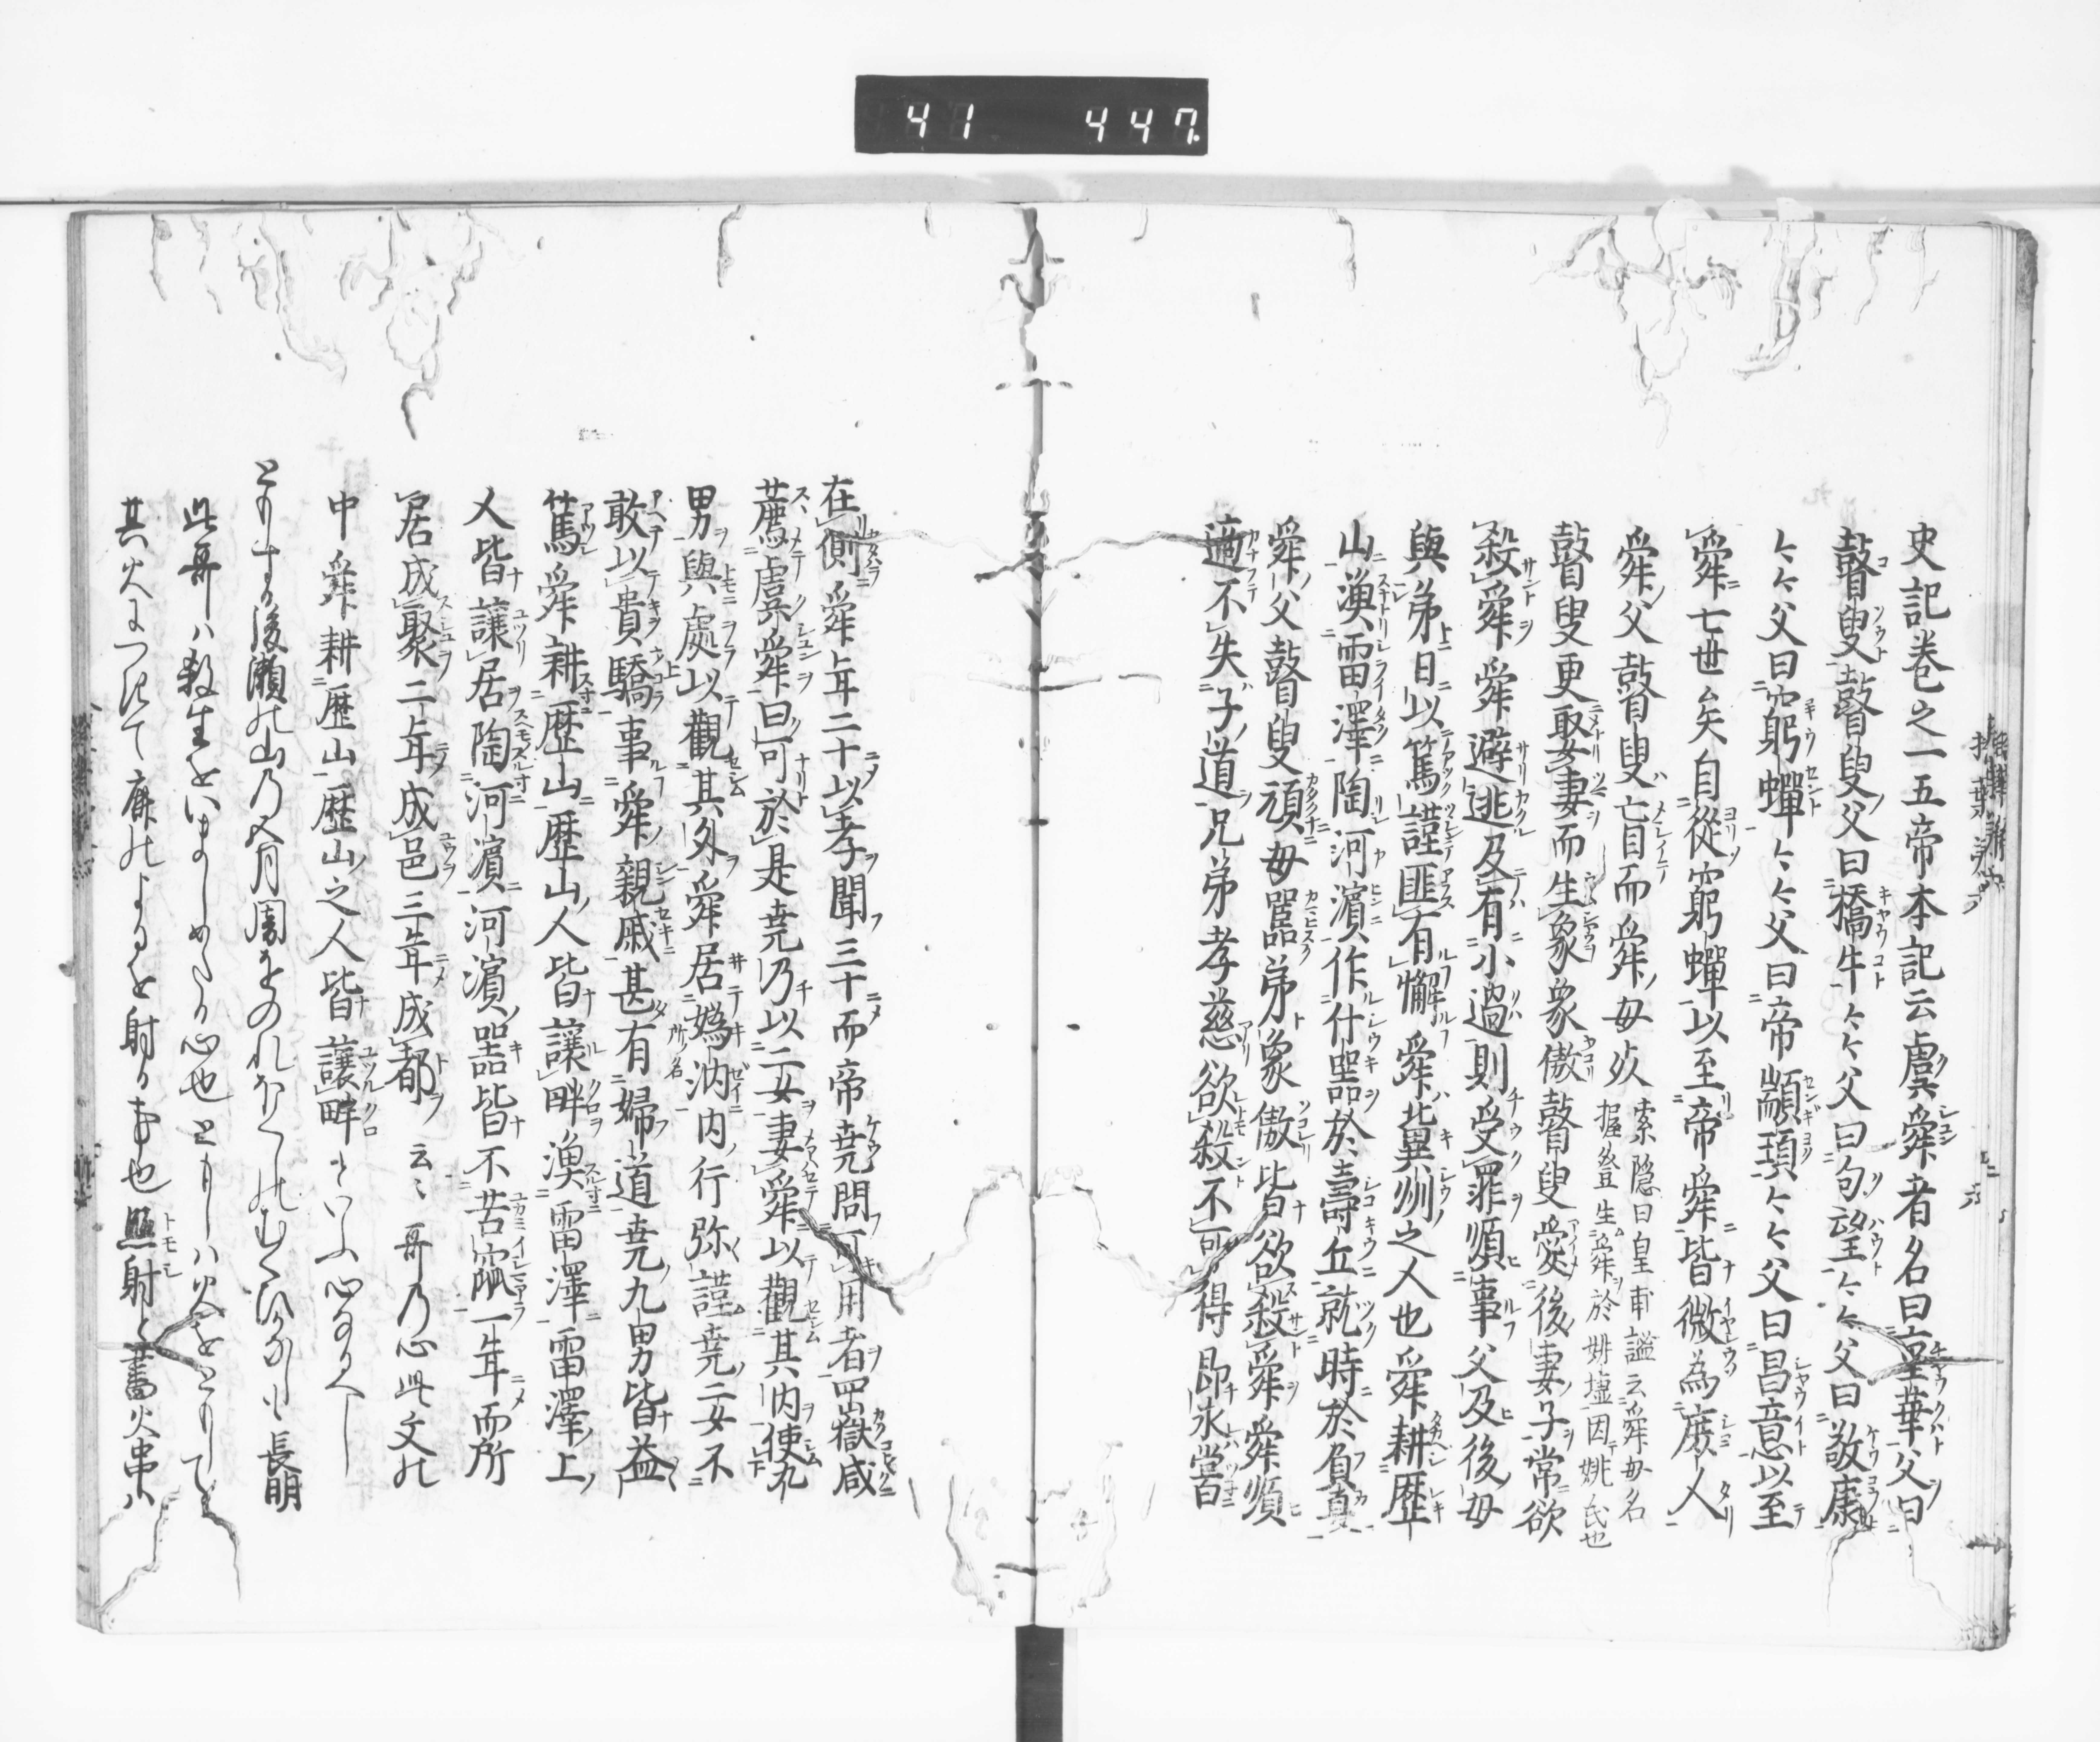 41 447
史記巻之一五帝本記云虞舜者名曰重華父曰
瞽叟瞽叟父曰橋牛々々父曰句望々々父曰敬康
々々父曰窮蟬々々父曰帝顓頊々々父曰昌意以至
舜七世矣自從窮蟬以至帝舜皆微為庶人
舜父瞽叟盲而舜母死
索隠曰皇甫謐云舜母名
握登生舜於姚墟因姚氏也
瞽叟更娶妻而生象象傲瞽叟愛後妻子常欲
殺舜舜避逃及有小過則受罪順事父及後母
與弟日以篤謹匪有懈舜冀州之人也舜耕歴
山漁雷澤陶河濱作什器於壽丘就時於負夏
舜父瞽叟頑母嚚弟象傲皆欲殺舜舜順
適不失子道兄弟孝慈欲殺不可得即求嘗
在側舜年二十以孝聞三十而帝堯問可用者四嶽咸
薦虞舜曰可於是堯乃以二女妻舜以觀其内使九
男與處以觀其外舜居媯汭内行弥謹堯二女不
敢以貴驕事舜親戚甚有婦道堯九男皆益
所名
篤舜耕歴山歴山人皆譲畔漁雷澤雷澤上
人皆譲居陶河濱河濱器皆不苦窳一年而所
居成聚二年成邑三年成都云々哥乃心此文の
中舜耕歴山歴山之人皆譲畔といふ心なるへし
ともしする後瀬の山の 長明
此哥ハ殺生をいましめたる心也ともしハ火をともして
其火につきて鹿のよるを射る事也照射と書火串ハ